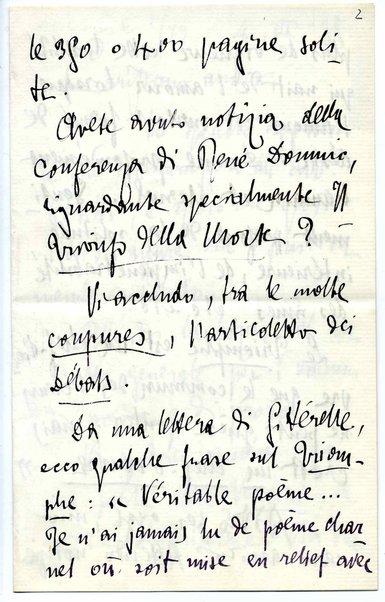 2
le 350 o 400 pagine soli-
te.
Avete avuto notizia della
conferenza di René Doumic,
riguardante specialmente Il
Trionfo della Morte?
Vi accludo, tra le molte
coupures, l'articoletto dei
Débats.
Da una lettera di
ecco qualche frase sul Triom-
phe: « Véritable poème...
Je n'ai jamais lu de poème char-
nel où soit mise en relief avec